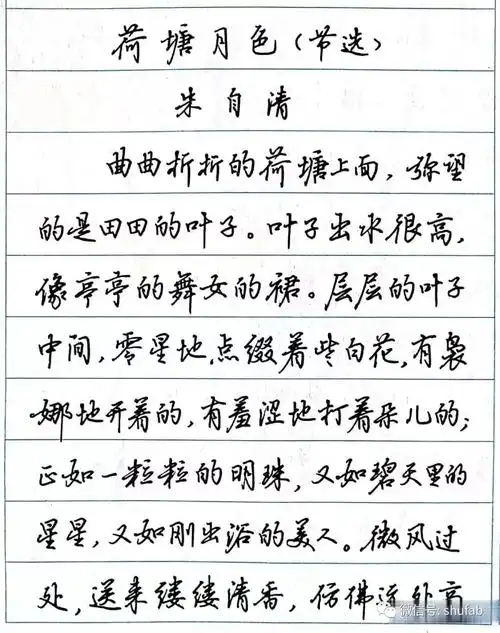 荷塘月色(节选)
朱自清
曲曲折折的荷塘上面，弥望
的是田田的叶子。叶子出水很高，
像亭亭的舞女的裙。层层的叶子
中间，零星地点缀着些白花，有袅
娜地开着的，有羞涩地打着朵儿的；
正如一粒粒的明珠，又如碧天里的
星星，又如刚出浴的美人。微风过
处，送来缕缕清香，仿佛远处高
微信号: shufab